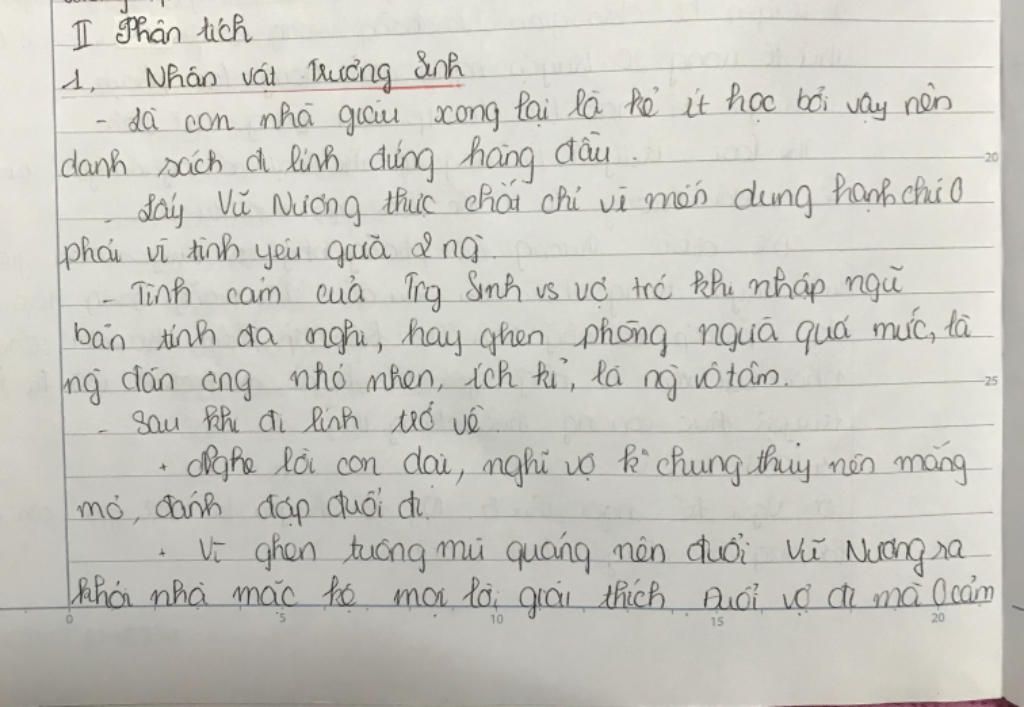 II Phân tích
1, Nhân vật Trưởng Sinh
- Là con nhà giàu xong lại là kẻ ít học bởi vậy nên
danh sách đi lính đứng hàng đầu.
- Lấy Vũ Nương thực chất chỉ vì mến dung hạnh chứ 0
phải vì tình yêu giữa 2 ng.
- Tình cảm của Trg Sinh vs vợ trc khi nhập ngũ
bản tính đa nghi, hay ghen phòng ngừa quá mức, là
ng đàn ông nhỏ nhen, ích kỉ, là ng vô tâm.
- Sau khi đi lính trở về
+ Nghe lời con dại, nghĩ vợ k chung thủy nên mắng
mỏ, đánh đập đuổi đi.
+ Vì ghen tuông mù quáng nên đuổi Vũ Nương ra
khỏi nhà mặc kệ mọi lời giải thích đuổi vợ đi mà 0 cảm
0 5 10 15 20
20
25